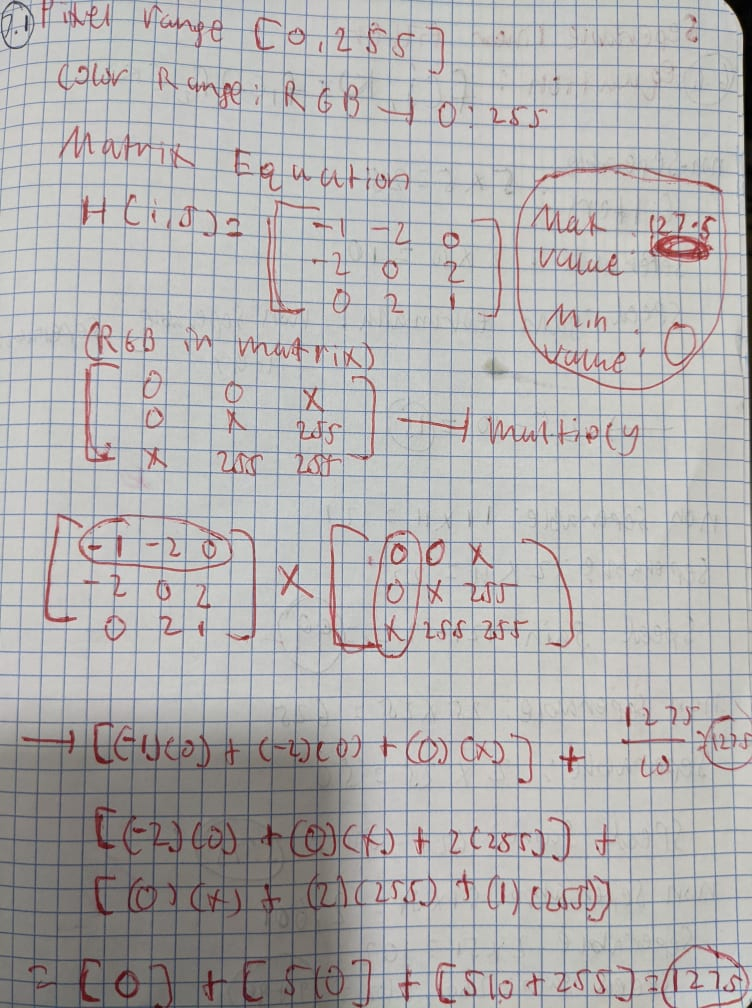 7.1 Pixel range [0,255]
Color Range: RGB → 0:255
Matrix Equation
H(i,j) = [ -1 -2 0
-2 0 2
0 2 1 ]
Max value: 127.5
Min value: 0
(RGB in matrix)
[ 0 0 x
0 x 255
x 255 255 ] → multiply
[ -1 -2 0
-2 0 2
0 2 1 ] × [ 0 0 x
0 x 255
x 255 255 ]
→ [(-1)(0) + (-2)(0) + (0)(x)] + 1275/10 = 127.5
[(-2)(0) + (0)(x) + 2(255)] +
[(0)(x) + (2)(255) + (1)(255)]
= [0] + [510] + [510 + 255] = 1275